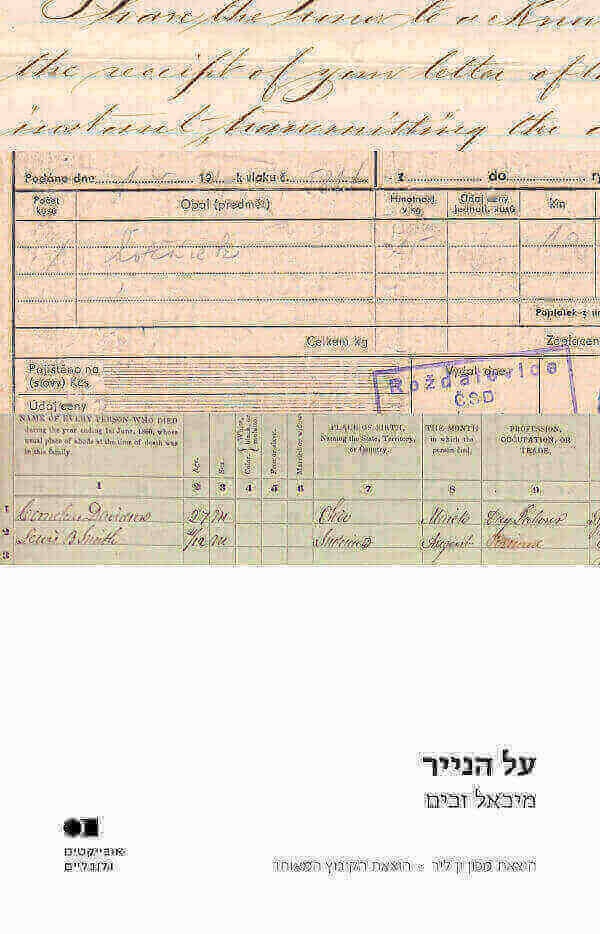 I have the honor to a
the receipt of your letter of
instant, transmitting the
Podáno dne 19 k vlaku č. z do
Počet kusů Obal (předmět) Hmotnost v kg Údaj ceny jednotl. kusů Km
Poplatek z
Celkem kg Zaplacen
Pojištěno na (slovy) Kčs Vydal dne
Údaj ceny
Rožďalovice
ČSD
NAME OF EVERY PERSON WHO DIED
during the year ending 1st June, 1860, whose
usual place of abode at the time of death was
in this family.
Age. Sex
PLACE OF BIRTH,
Naming the State, Territory,
or Country.
THE MONTH
in which the
person died.
PROFESSION,
OCCUPATION, OR
TRADE.
1 2 3 4 5 6 7 8 9
1 Davidson 27 M Ohio March
2 Smith M Indiana August
3
על הנייר
מיכאל זכים
אובייקטים
גלובליים
הוצאת מכון ון ליר - הוצאת הקיבוץ המאוחד